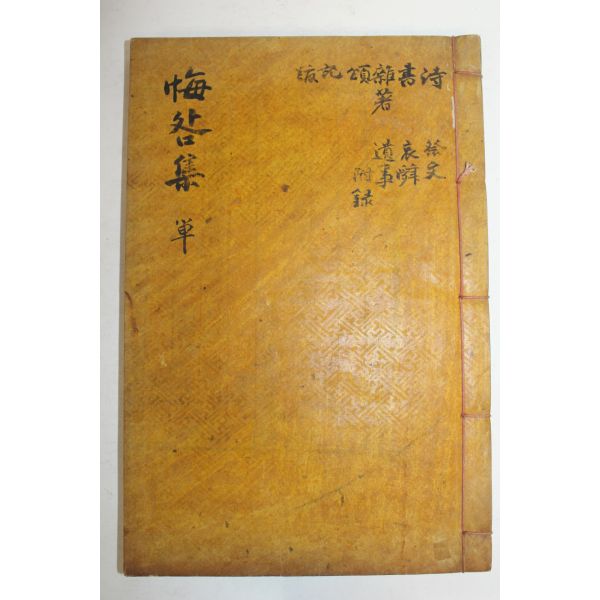 詩
書
雜著
頌
記
跋
祭文
哀辭
遺事
附録
悔咎集 單